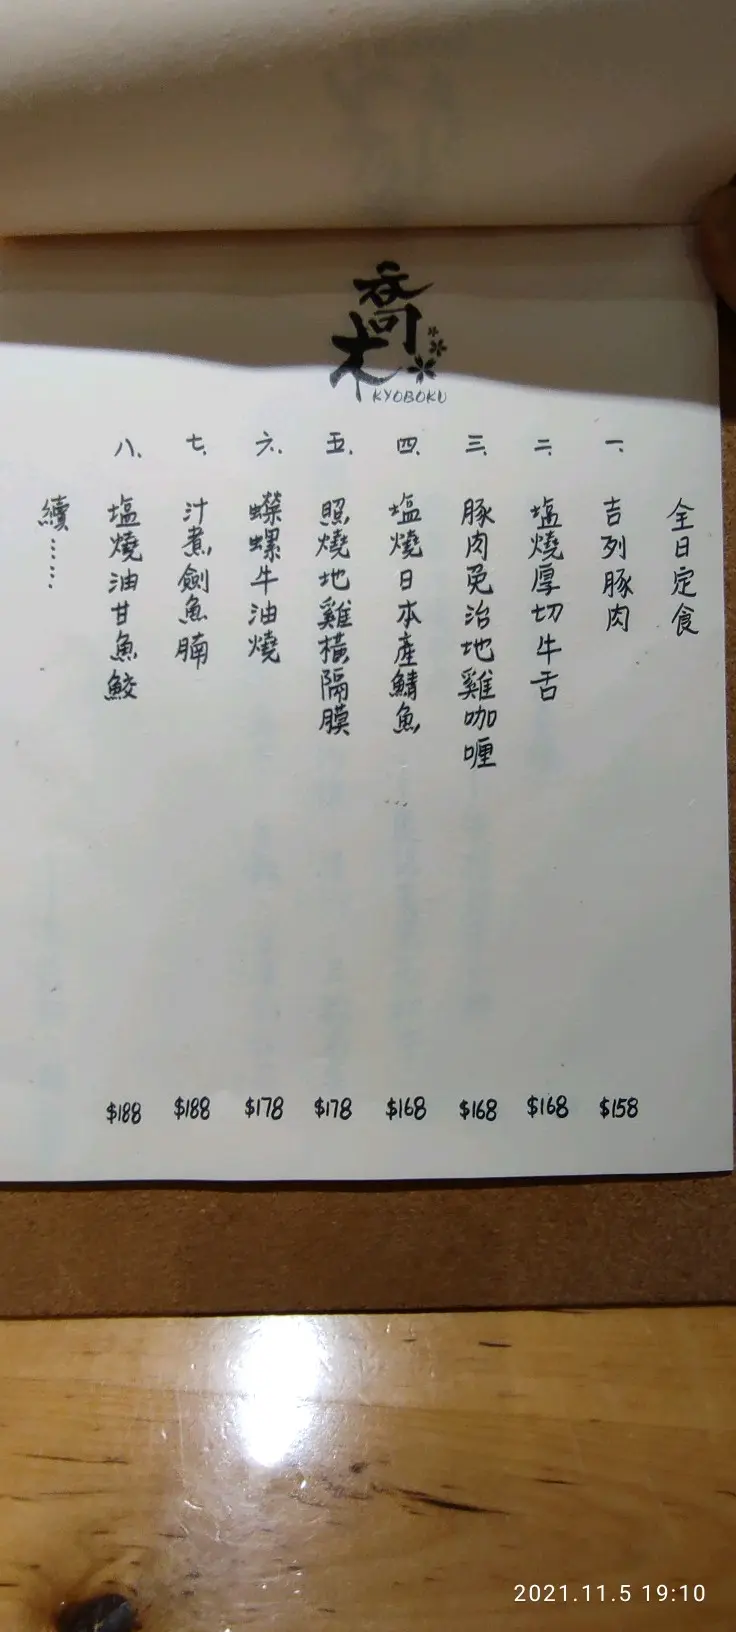 喬木
KYOBOKU
全日定食
一、吉列豚肉 $158
二、塩燒厚切牛舌 $168
三、豚肉免治地雞咖喱 $168
四、塩燒日本產鯖魚 $168
五、照燒地雞橫隔膜 $178
六、蠑螺牛油燒 $178
七、汁煮劍魚腩 $188
八、塩燒油甘魚鮫 $188
續……
2021.11.5 19:10